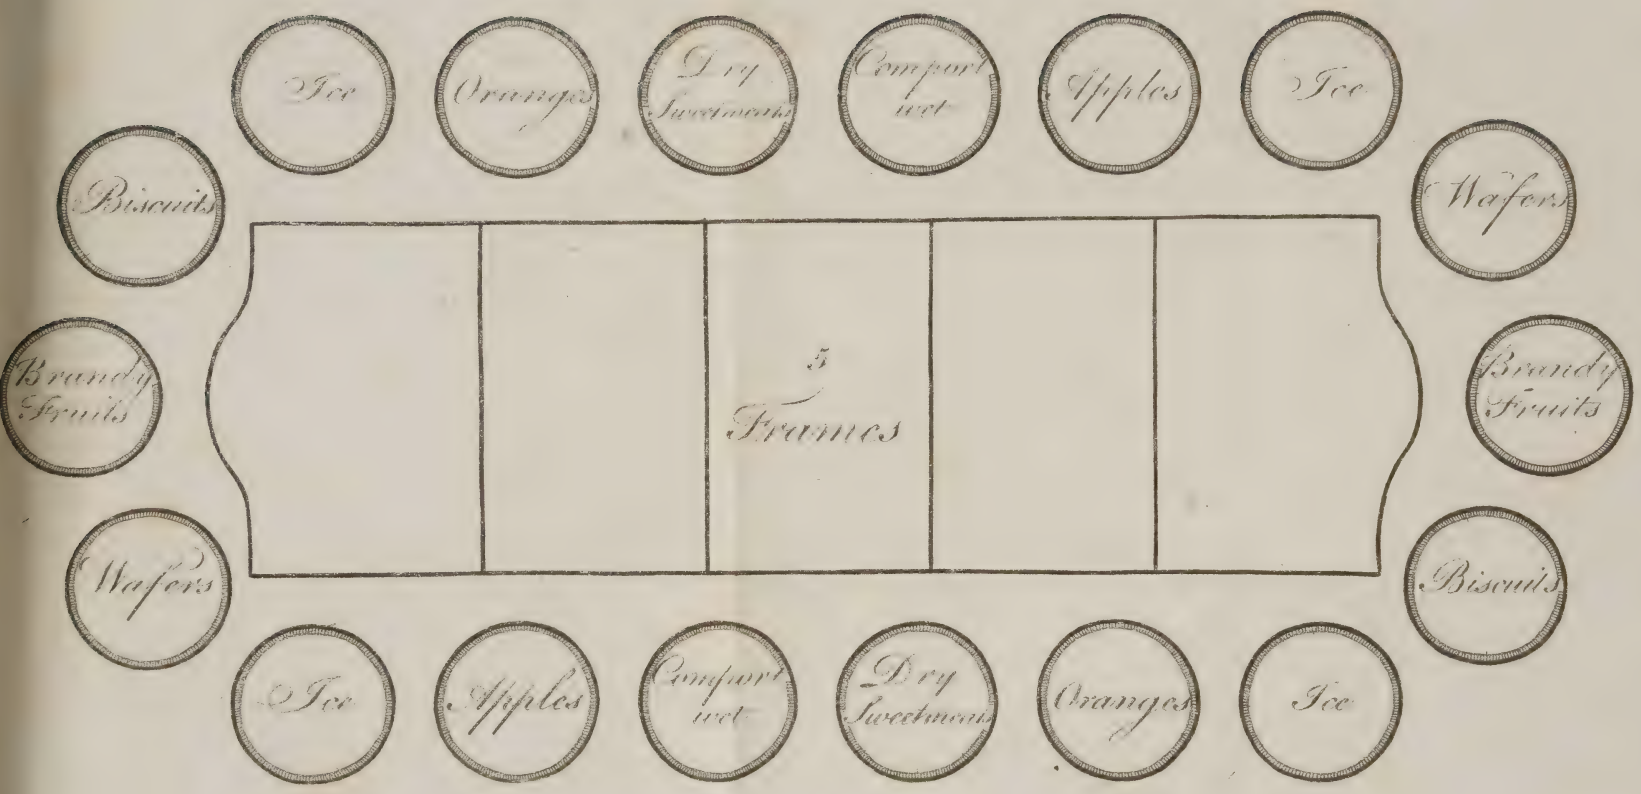 Ice
Oranges
Dry
Sweetmeats
Comport
wet
Apples
Ice
Biscuits
Wafers
Brandy
Fruits
5
Frames
Brandy
Fruits
Wafers
Biscuits
Ice
Apples
Comport
wet
Dry
Sweetmeats
Oranges
Ice